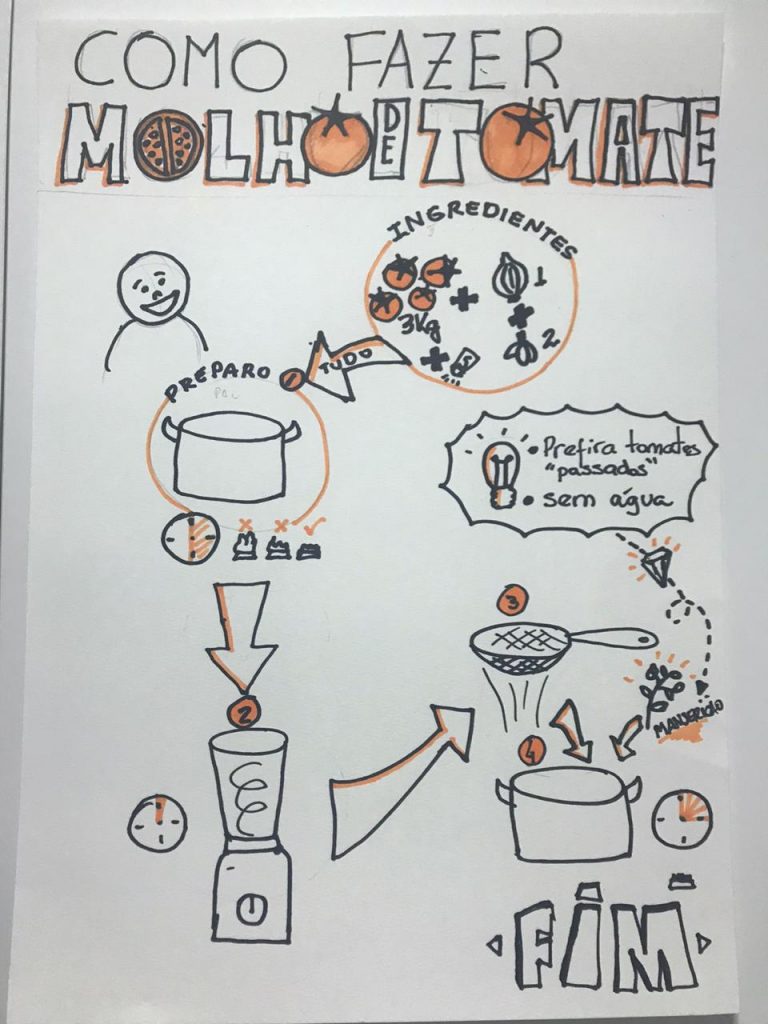 COMO FAZER
MOLHO DE TOMATE
INGREDIENTES
1
3Kg
2
TUDO
1
PREPARO
• Prefira tomates
"passados"
• sem água
2
3
MANJERICÃO
4
FIM